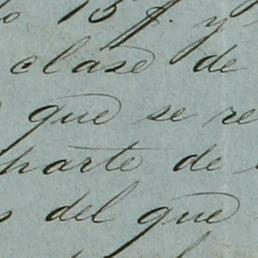 15 f. y
clase de
que se re
parte de
del que